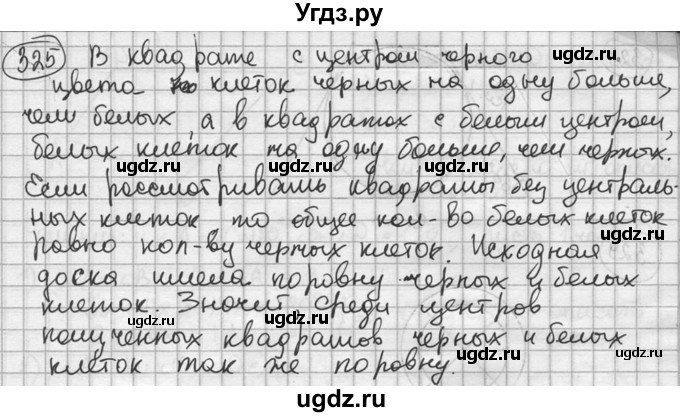 Угдз.ру
325 В квадрате с центром черного
цвета клеток черных на одну больше,
чем белых, а в квадратах с белым центром,
белых клеток на одну больше, чем черных.
Если рассматривать квадраты без централь-
ных клеток то общее кол-во белых клеток
равно кол-ву черных клеток. Исходная
доска имела поровну черных и белых
клеток. Значит среди центров
полученных квадратов черных и белых
клеток так же поровну.
угдз.ру